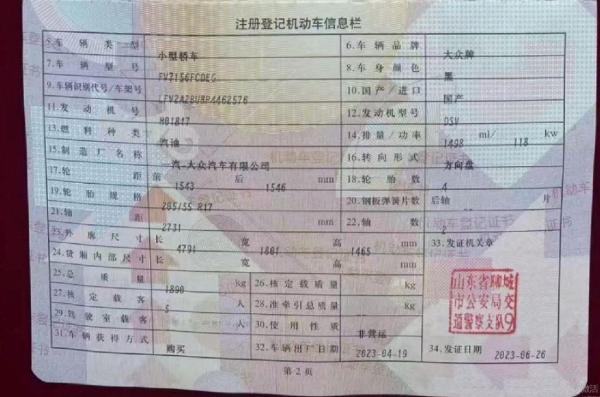 注册登记机动车信息栏
5.车辆类型 小型轿车 6.车辆品牌 大众牌
7.车辆型号 FV7156FCDEG 8.车身颜色 黑
9.车辆识别代号/车架号 10.国产/进口 国产
11.发动机号 H01847 12.发动机型号 DSV
13.燃料种类 汽油 14.排量/功率 1498 ml/ 118 kw
15.制造厂名称 一汽-大众汽车有限公司 16.转向形式 方向盘
17.轮距 前 1543 后 1546 mm 18.轮胎数 4
19.轮胎规格 205/55 R17 20.钢板弹簧片数 后轴 片
21.轴距 2731 mm 22.轴数 2
23.外廓尺寸 长 4791 宽 1801 高 1465 mm 33.发证机关章
24.货厢内部尺寸 长 宽 高 mm
25.总质量 1890 kg 26.核定载质量 kg
27.核定载客 5 人 28.准牵引总质量 kg
29.驾驶室载客 人 30.使用性质 非营运
31.车辆获得方式 购买 32.车辆出厂日期 2023-04-19 34.发证日期 2023-06-26
山东省聊城
市公安局交
通警察支队9
第2页